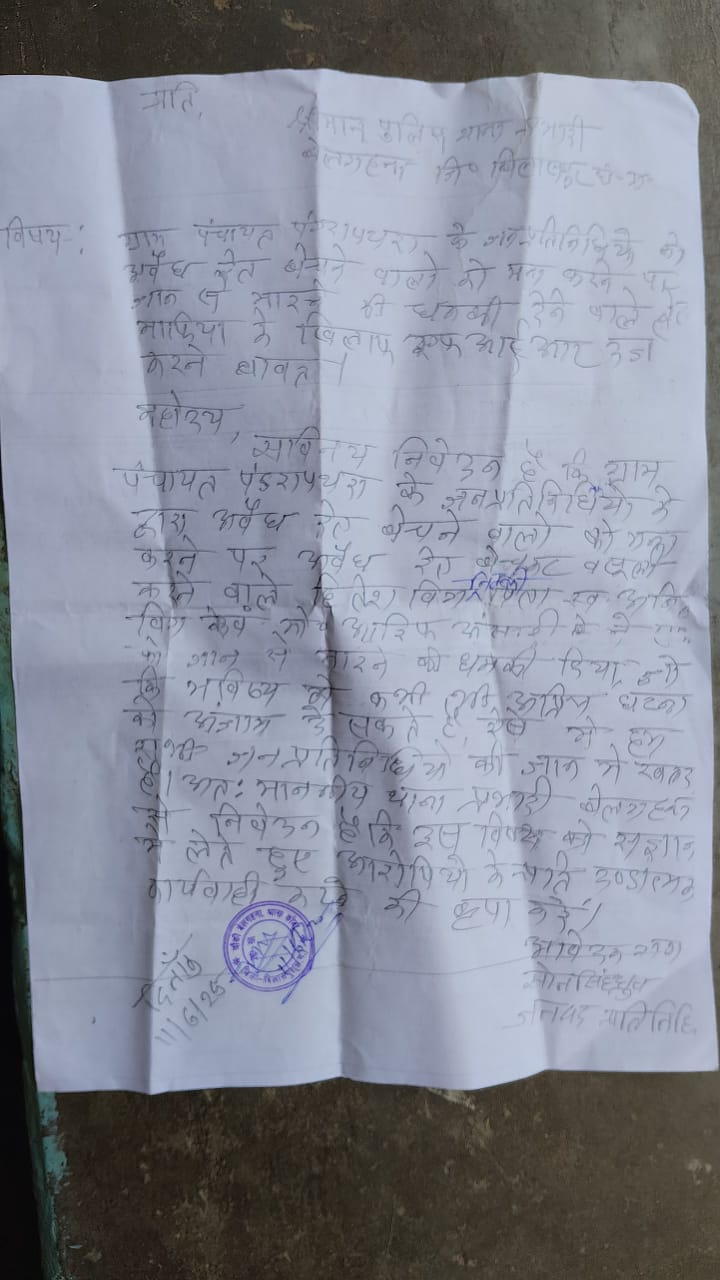 प्रति,
श्रीमान पुलिस थाना प्रभारी
बेलगहना जि० बिलासपुर छ-ग-
विषय-: ग्राम पंचायत पंडरापथरा के जनप्रतिनिधियो को
अवैध रेत बेचने वालो को मना करने पर
जान से मारने की धमकी देने वाले रेत
माफिया के खिलाफ एफ आई आर दर्ज
करने बावत।
महोदय,
सविनय निवेदन है कि ग्राम
पंचायत पंडरापथरा के जनप्रतिनिधियो के
द्वारा अवैध रेत बेचने वालो को मना
करने पर अवैध रेत बेचकर वसूली
करने वाले हितेश पिता स्व
आरिफ
को जान से मारने की धमकी दिया, जो
कि भविष्य मे कभी भी अप्रिय घटना
को अंजाम दे सकते है, ऐसे मे हम
सभी जनप्रतिनिधियो की जान मे खतरा
है। अत: माननीय थाना प्रभारी बेलगहना
से निवेदन है कि इस विषय को संज्ञान
मे लेते हुए आरोपियो के प्रति दण्डात्मक
कार्यवाही करने की कृपा करें।
आवेदक गण
दिनाँक
11/6/25
जनपद प्रतिनिधि